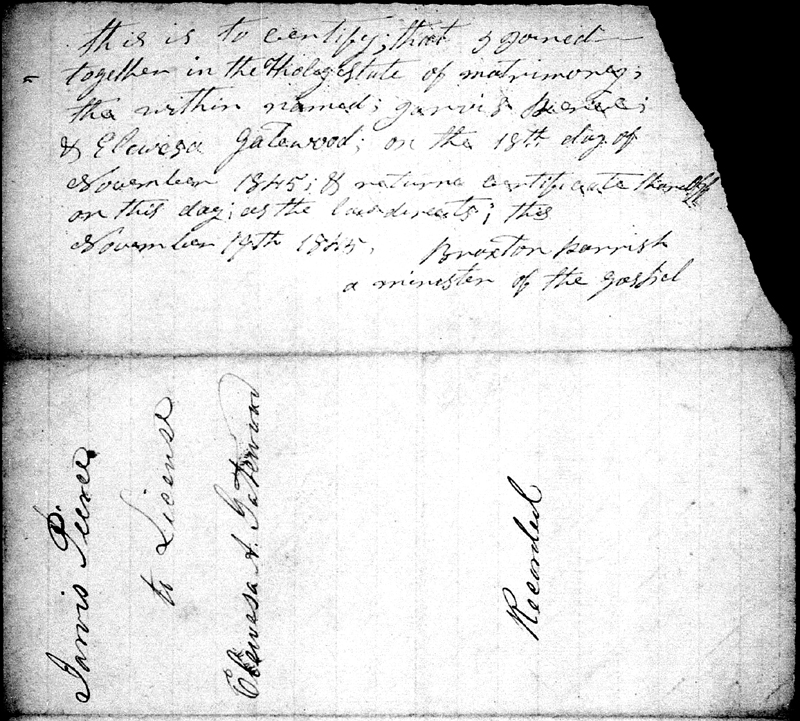 this is to certify; that I joined
together in the Holy state of matrimony;
the within named; Jarvis Pierce;
& Elewesa Gatewood; on the 18th day of
November 1845; & return a certificate thereoff
on this day; as the law directs; this
November 19th 1845.
Braxton Parrish
a minister of the gospel
Jarvis Pierce
to License
Elewesa A. Gatewood
Recorded